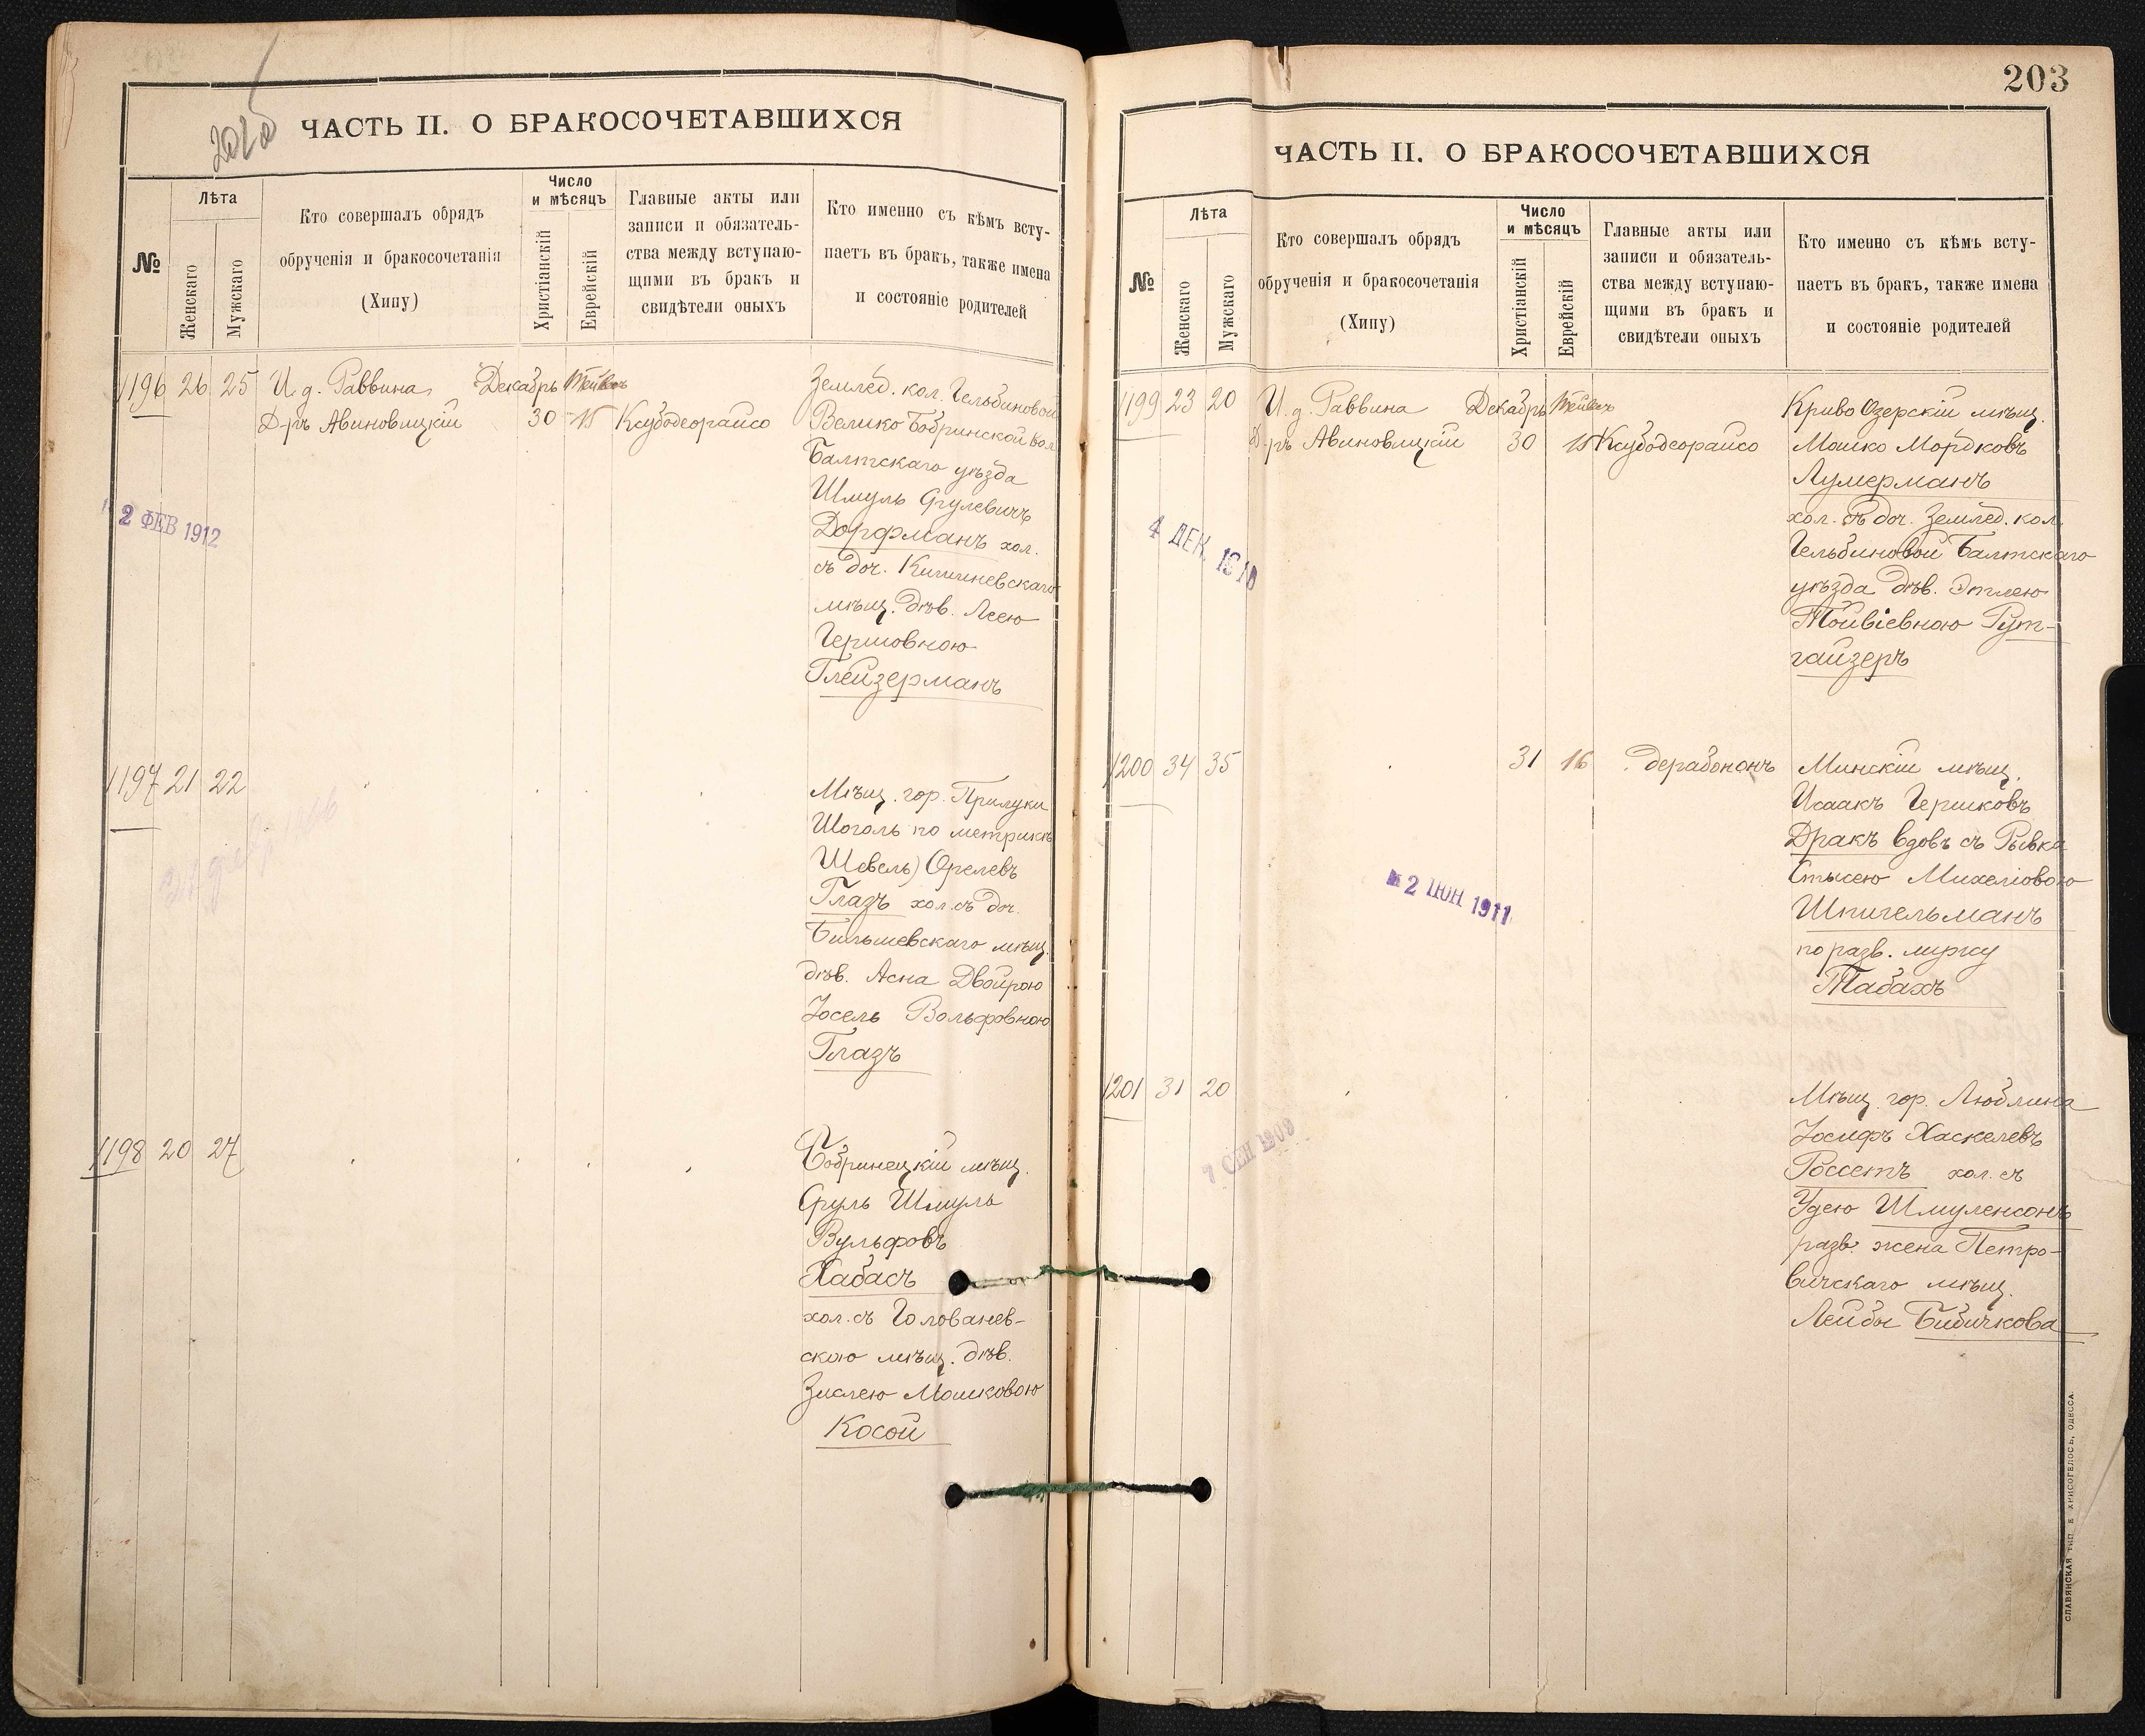 ЧАСТЬ II. О БРАКОСОЧЕТАВШИХСЯ
№
Лѣта
Женскаго
Мужскаго
Кто совершалъ обрядъ
обрученія и бракосочетанія
(Хипу)
Число
и мѣсяцъ
Христіанскій
Еврейскій
Главные акты или
записи и обязатель-
ства между вступаю-
щими въ бракъ и
свидѣтели оныхъ
Кто именно съ кѣмъ всту-
паетъ въ бракъ, также имена
и состояніе родителей
1196 26 25 И. д. Раввина Декабрь Тейвесъ
Д-ръ Авиновицкій 30 15 Ксубодеорайсо
Землед. кол. Гельбиновой
Велико Бобринской вол
Балтскаго уѣзда
Шмуль Срулевичъ
Дорфманъ хол.
съ доч. Кишиневскаго
мѣщ. дѣв. Леею
Гершовною
Глейзерманъ
2 ФЕВ 1912
1197 21 22
Мѣщ. гор. Прилуки
Шоголь по метрикѣ
Шевель) Орелевъ
Глазъ хол. съ доч.
мѣщ.
дѣв. Асна Двойрою
Іосель Вольфовною
Глазъ
1198 20 27
Бобринецкій мѣщ.
Сруль Шмуль
Вульфовъ
Хабасъ
хол. съ Голованев-
скою мѣщ. дѣв.
Зислею Мошковою
Косой
203
ЧАСТЬ II. О БРАКОСОЧЕТАВШИХСЯ
№
Лѣта
Женскаго
Мужскаго
Кто совершалъ обрядъ
обрученія и бракосочетанія
(Хипу)
Число
и мѣсяцъ
Христіанскій
Еврейскій
Главные акты или
записи и обязатель-
ства между вступаю-
щими въ бракъ и
свидѣтели оныхъ
Кто именно съ кѣмъ всту-
паетъ въ бракъ, также имена
и состояніе родителей
1199 23 20 И. д. Раввина Декабрь Тейвесъ
Д-ръ Авиновицкій 30 15 Ксубодеорайсо
Криво Озерскій мѣщ.
Мошко Мордковъ
Лумерманъ
хол. съ доч. Землед. кол.
Гельбиновой Балтскаго
уѣзда дѣв. Этлею
Тойвіевною Гут-
гайзеръ
4 ДЕК. 1910
1200 34 35 31 16 дерабононъ
Минскій мѣщ.
Исаакъ Гершковъ
Дракъ вдовъ съ Рывка
Михеліовою
Шпигельманъ
по разв. мужу
Табахъ
2 ІЮН 1911
1201 31 20
Мѣщ. гор. Люблина
Іосифъ Хаскелевъ
Россетъ хол. съ
Удею Шмуленсонъ
разв. жена Петро-
вичскаго мѣщ.
Лейбы Бибичкова
7 СЕН 1909
СЛАВЯНСКАЯ ТИП. Е. ХРИСОГЕЛОСЪ, ОДЕССА.